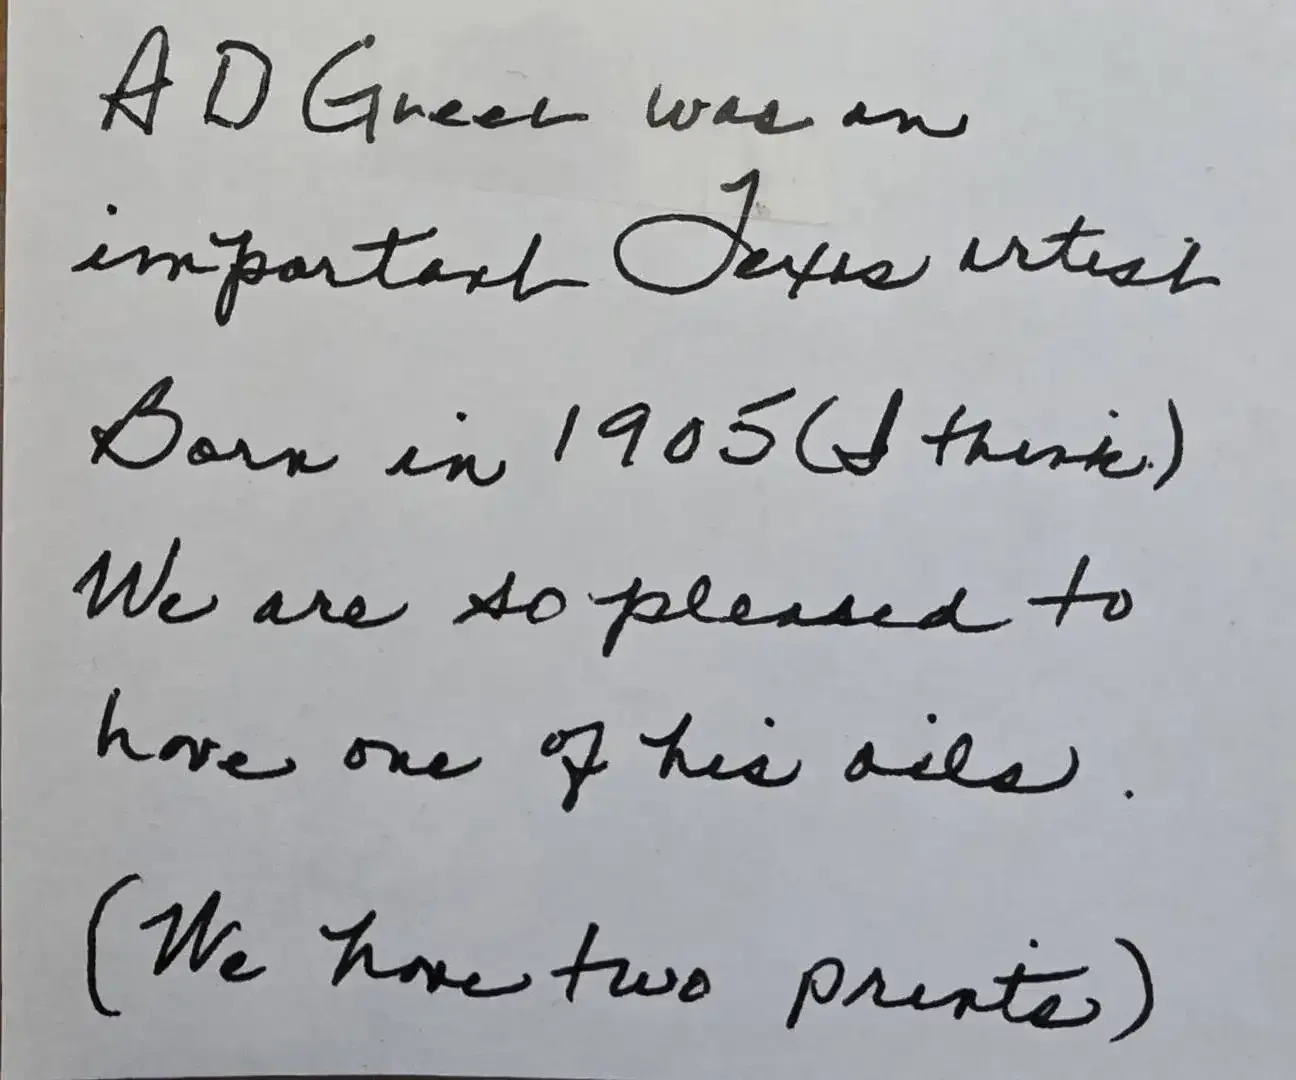 A D Greer was an
important Texas artist
Born in 1905 (I think.)
We are so pleased to
have one of his oils.
(We have two prints)